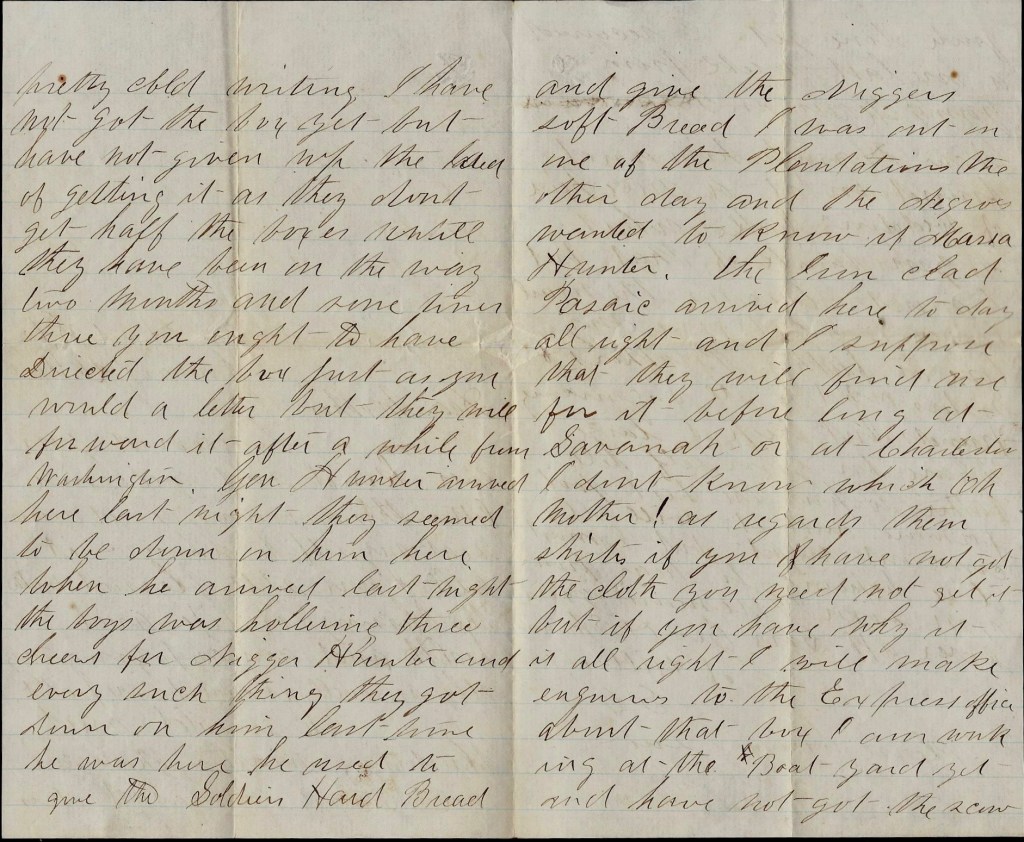 pretty cold writing I have
not got the box yet but
have not given up the Idea
of getting it as they dont
get half the boxes untill
they have been on the way
two months and some times
three you ought to have
Directed the box Just as you
would a letter but they will
forward it after a while from
Washington. Gen Hunter arrived
here last night they seemed
to be down on him here
When he arrived last night
the boys was hollering three
cheers for Nigger Hunter and
every such thing they got
down on him last time
he was here he used to
give the Soldiers Hard Bread
and give the Niggers
soft Bread I was out on
one of the Plantations the
other day and the Negroes
wanted to know if Massa
Hunter. the Iron clad
Pasaic arrived here to day
all right and I suppose
that they will find use
for it before long at
Savanah or at Charleston
I dont know which Oh
Mother! as regards them
shirts if you have not got
the cloth you need not get it
but if you have why it
is all right I will make
enquires to the Express office
about that box I am work
ing at the Boat yard yet
and have not got the scow